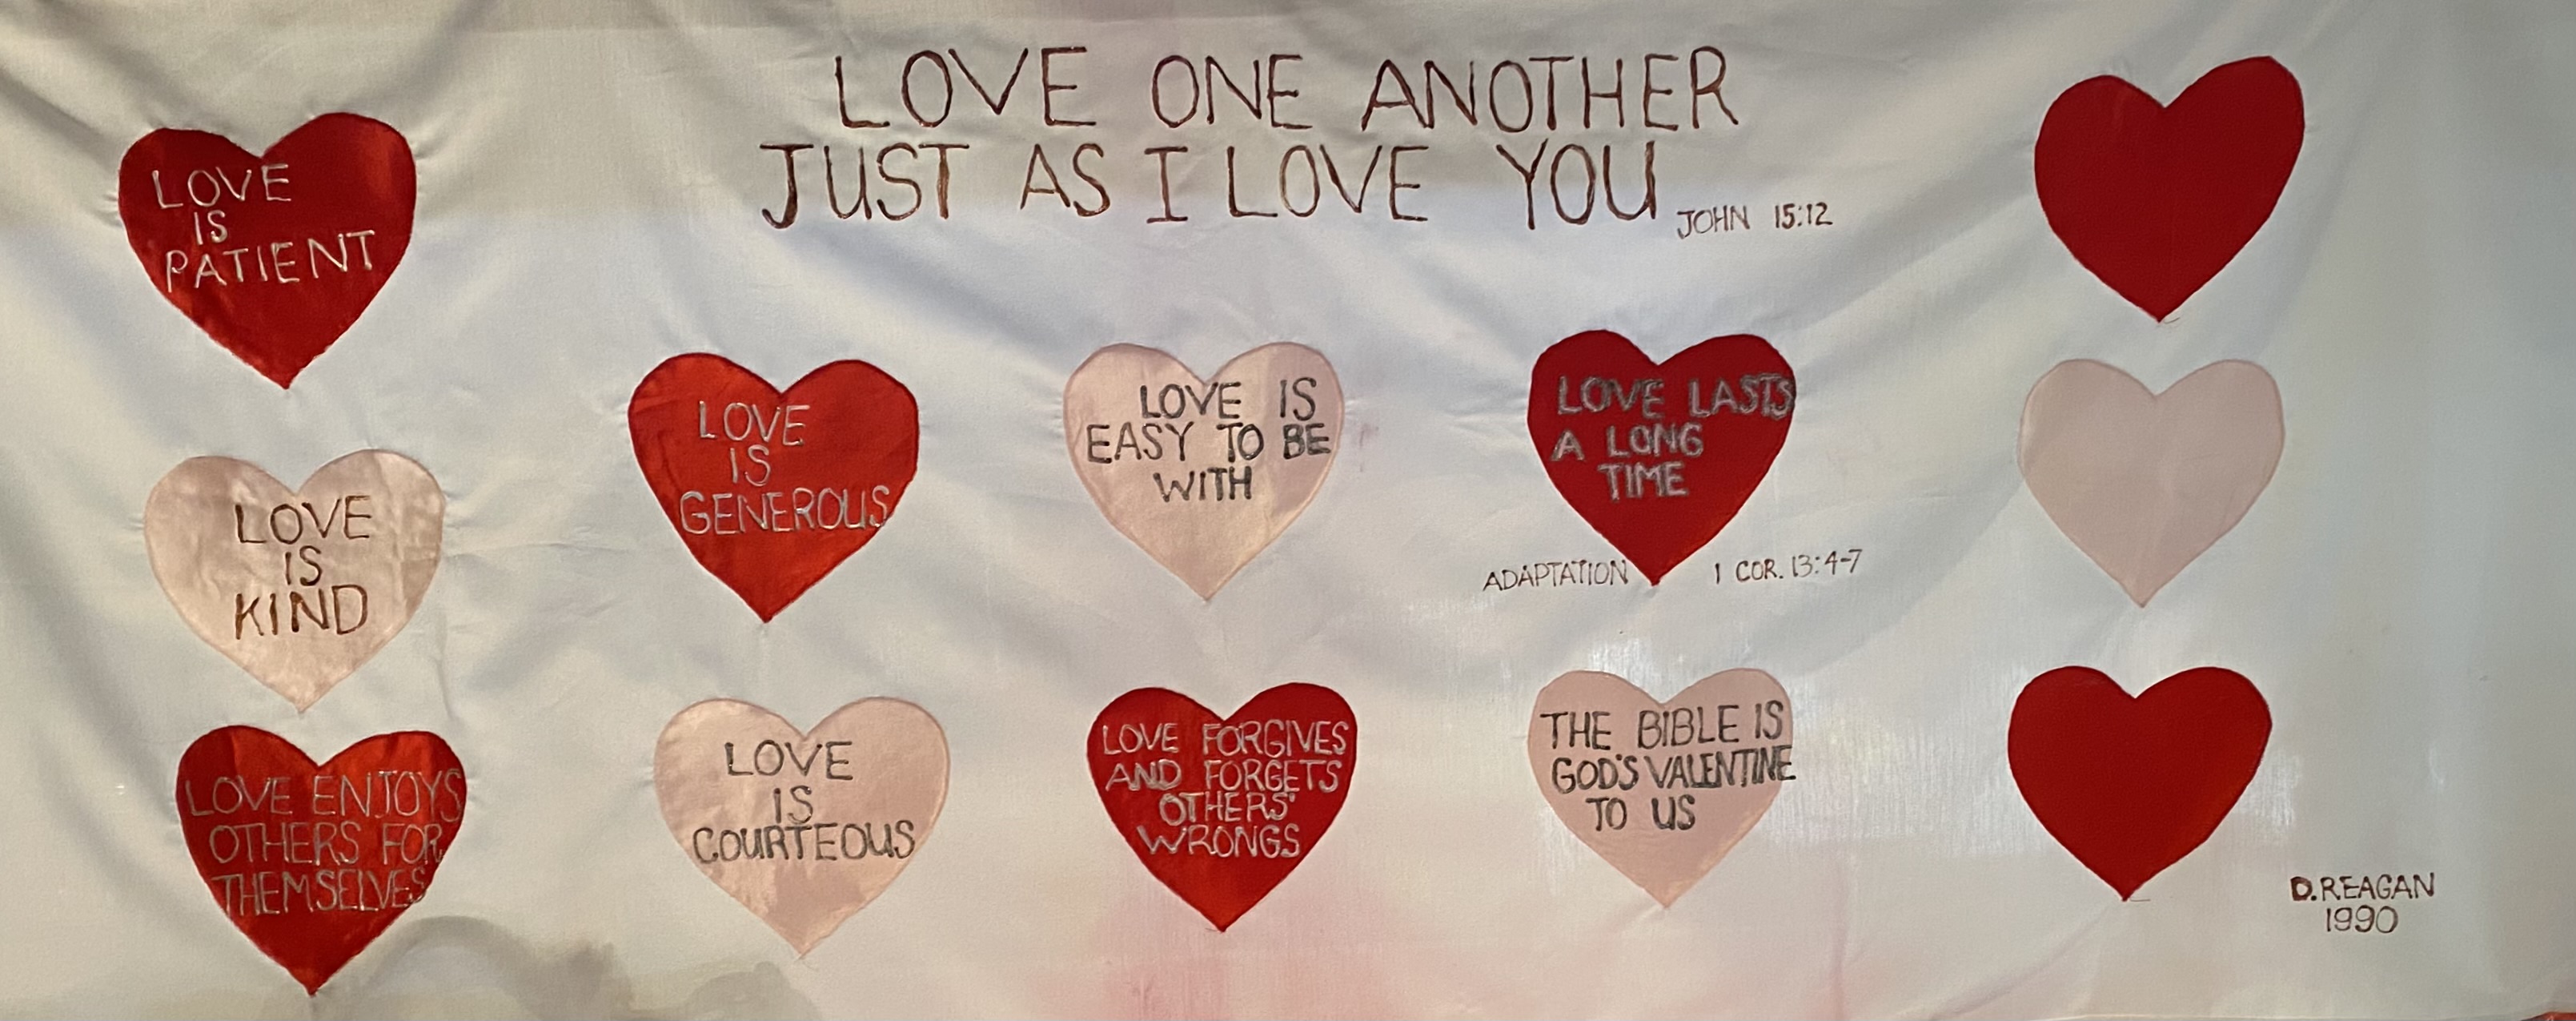 LOVE ONE ANOTHER
JUST AS I LOVE YOU
JOHN 15:12
LOVE
IS
PATIENT
LOVE
IS
KIND
LOVE ENJOYS
OTHERS FOR
THEMSELVES
LOVE
IS
GENEROUS
LOVE
IS
COURTEOUS
LOVE IS
EASY TO BE
WITH
LOVE FORGIVES
AND FORGETS
OTHERS'
WRONGS
LOVE LASTS
A LONG
TIME
ADAPTATION 1 COR. 13:4-7
THE BIBLE IS
GOD'S VALENTINE
TO US
D. REAGAN
1990